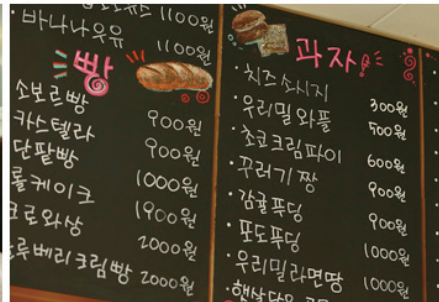 1100원
바나나우유 1100원
빵
소보르빵 900원
카스텔라 900원
단팥빵 1000원
롤케이크 1900원
크로와상 2000원
블루베리크림빵 2000원
과자
· 치즈소시지 300원
· 우리밀와플 500원
· 초코크림파이 600원
· 꾸러기짱 900원
· 감귤푸딩 900원
· 포도푸딩 1000원
· 우리밀라면땅 1000원